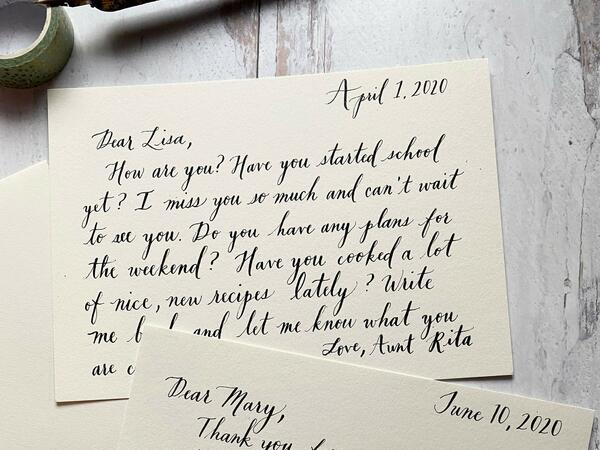 April 1, 2020
Dear Lisa,
How are you? Have you started school
yet? I miss you so much and can't wait
to see you. Do you have any plans for
the weekend? Have you cooked a lot
of nice, new recipes lately? Write
me and let me know what you
are
Love, Aunt Rita
Dear Mary,
June 10, 2020
Thank you